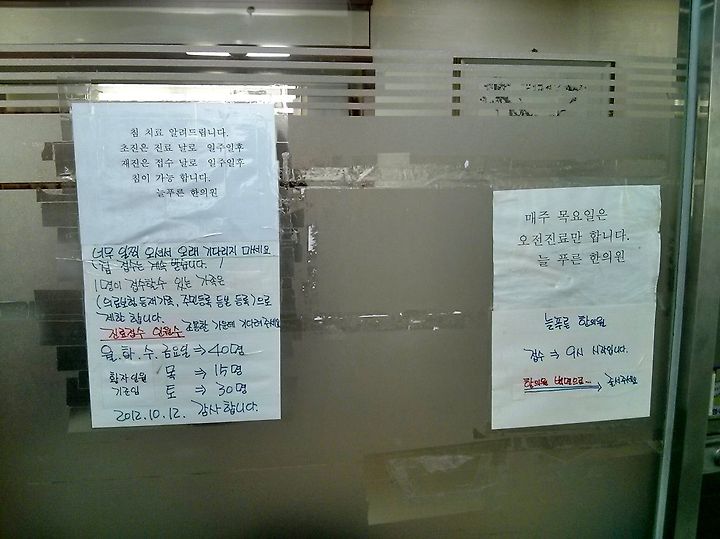 침 치료 알려드립니다.
초진은 진료 날로 일주일후
재진은 접수 날로 일주일후
침이 가능 합니다.
늘푸른 한의원
너무 일찍 오셔서 오래 기다리지 마세요
접수는 계속 받습니다.
1명이 접수할수 있는 가족은
(의료보험 등재가족, 주민등록 등본 등록)으로
제한 합니다.
진료접수 인원수 조용한 가운데 기다려주세요
월.화.수.금요일 ⇒ 40명
환자인원 목 ⇒ 15명
기준임 토 ⇒ 30명
2012.10.12. 감사합니다.
매주 목요일은
오전진료만 합니다.
늘 푸른 한의원
늘푸른 한의원
접수 ⇒ 9시 시작입니다.
한의원 벽면으로... 줄서주세요